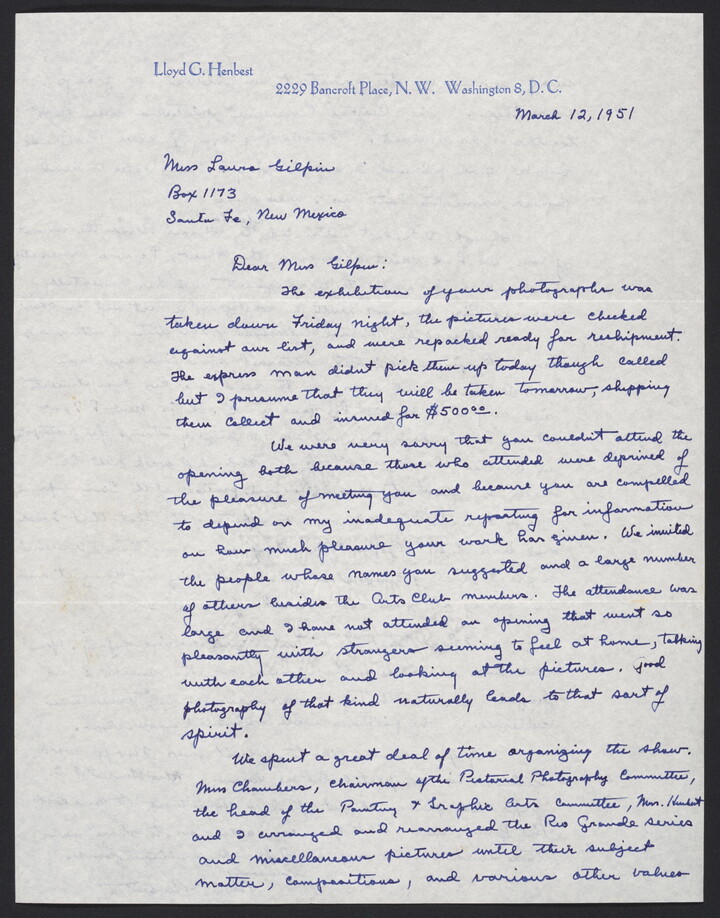 Lloyd G. Henbest
2229 Bancroft Place, N. W. Washington 8, D. C.
March 12, 1951
Miss Laura Gilpin
Box 1173
Santa Fe, New Mexico
Dear Miss Gilpin:
The exhibition of your photographs was
taken down Friday night, the pictures were checked
against our list, and were repacked ready for reshipment.
The express man didnt pick them up today though called
but I presume that they will be taken tomorrow, shipping
them collect and insured for $500.00.
We were very sorry that you couldn't attend the
opening both because those who attended were deprived of
the pleasure of meeting you and because you are compelled
to depend on my inadequate reporting for information
on how much pleasure your work has given. We invited
the people whose names you suggested and a large number
of others besides the Arts Club members. The attendance was
large and I have not attended an opening that went so
pleasantly with strangers seeming to feel at home, talking
with each other and looking at the pictures. Good
photography of that kind naturally leads to that sort of
spirit.
We spent a great deal of time organizing the show.
Miss Chambers, chairman of the Pictorial Photography Committee,
the head of the Painting & Graphic Arts Committee, Mrs. Henbest
and I arranged and rearranged the Rio Grande series
and miscellaneous pictures until their subject
matter, compositions, and various other values